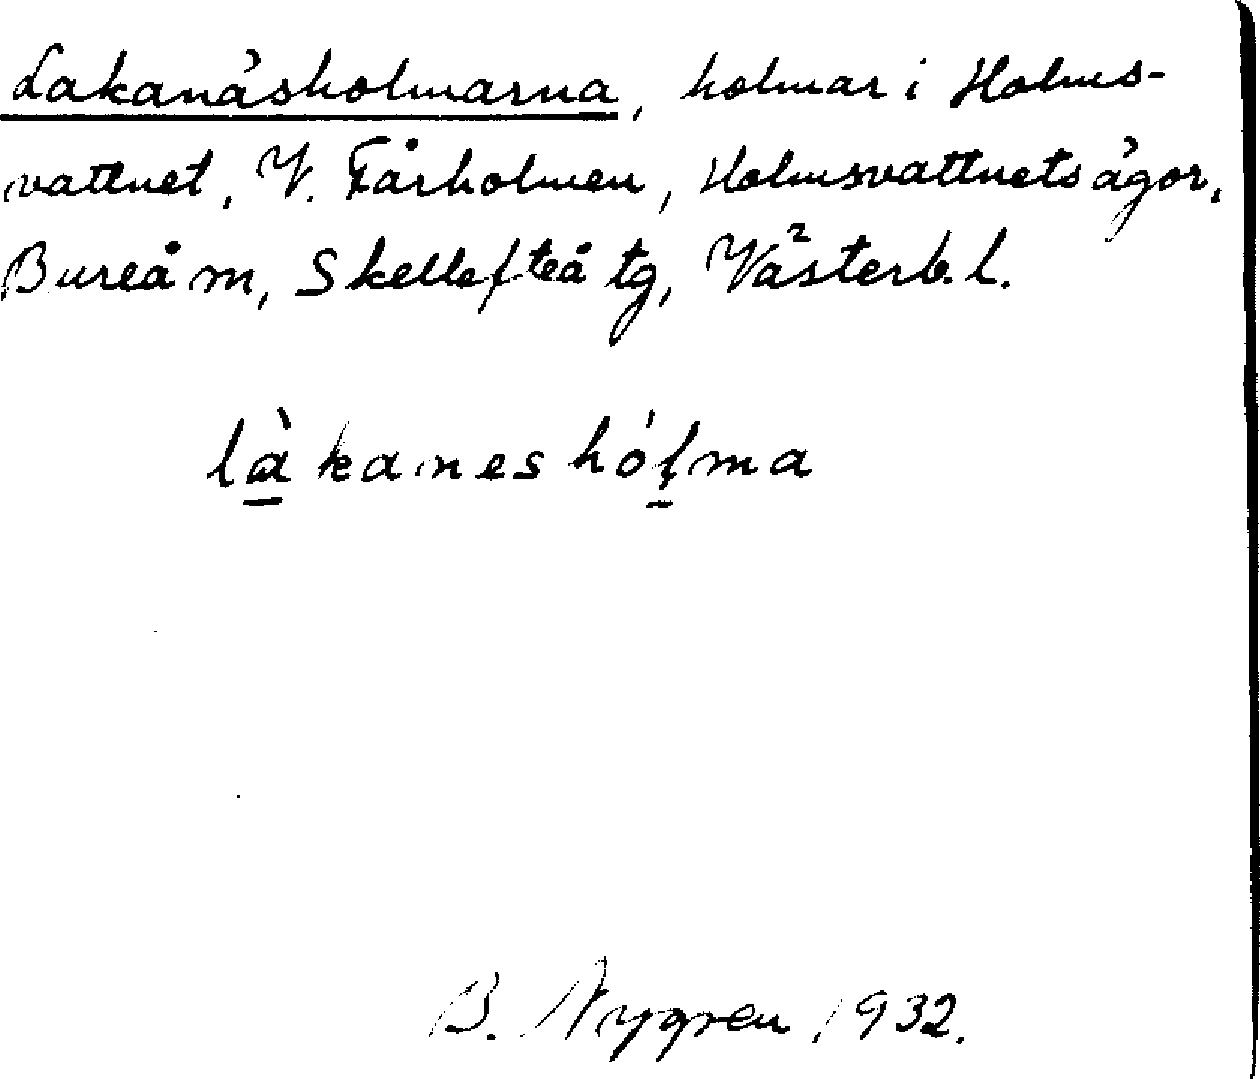 Lakanäsholmarna, holmar i Holms-
vattnet, V. Fårholmen, Holmsvattnets ägor,
Bureå m, Skellefteå tg, Västerb. l.
là̱kaneshóḻma
B. Nygren 1932.